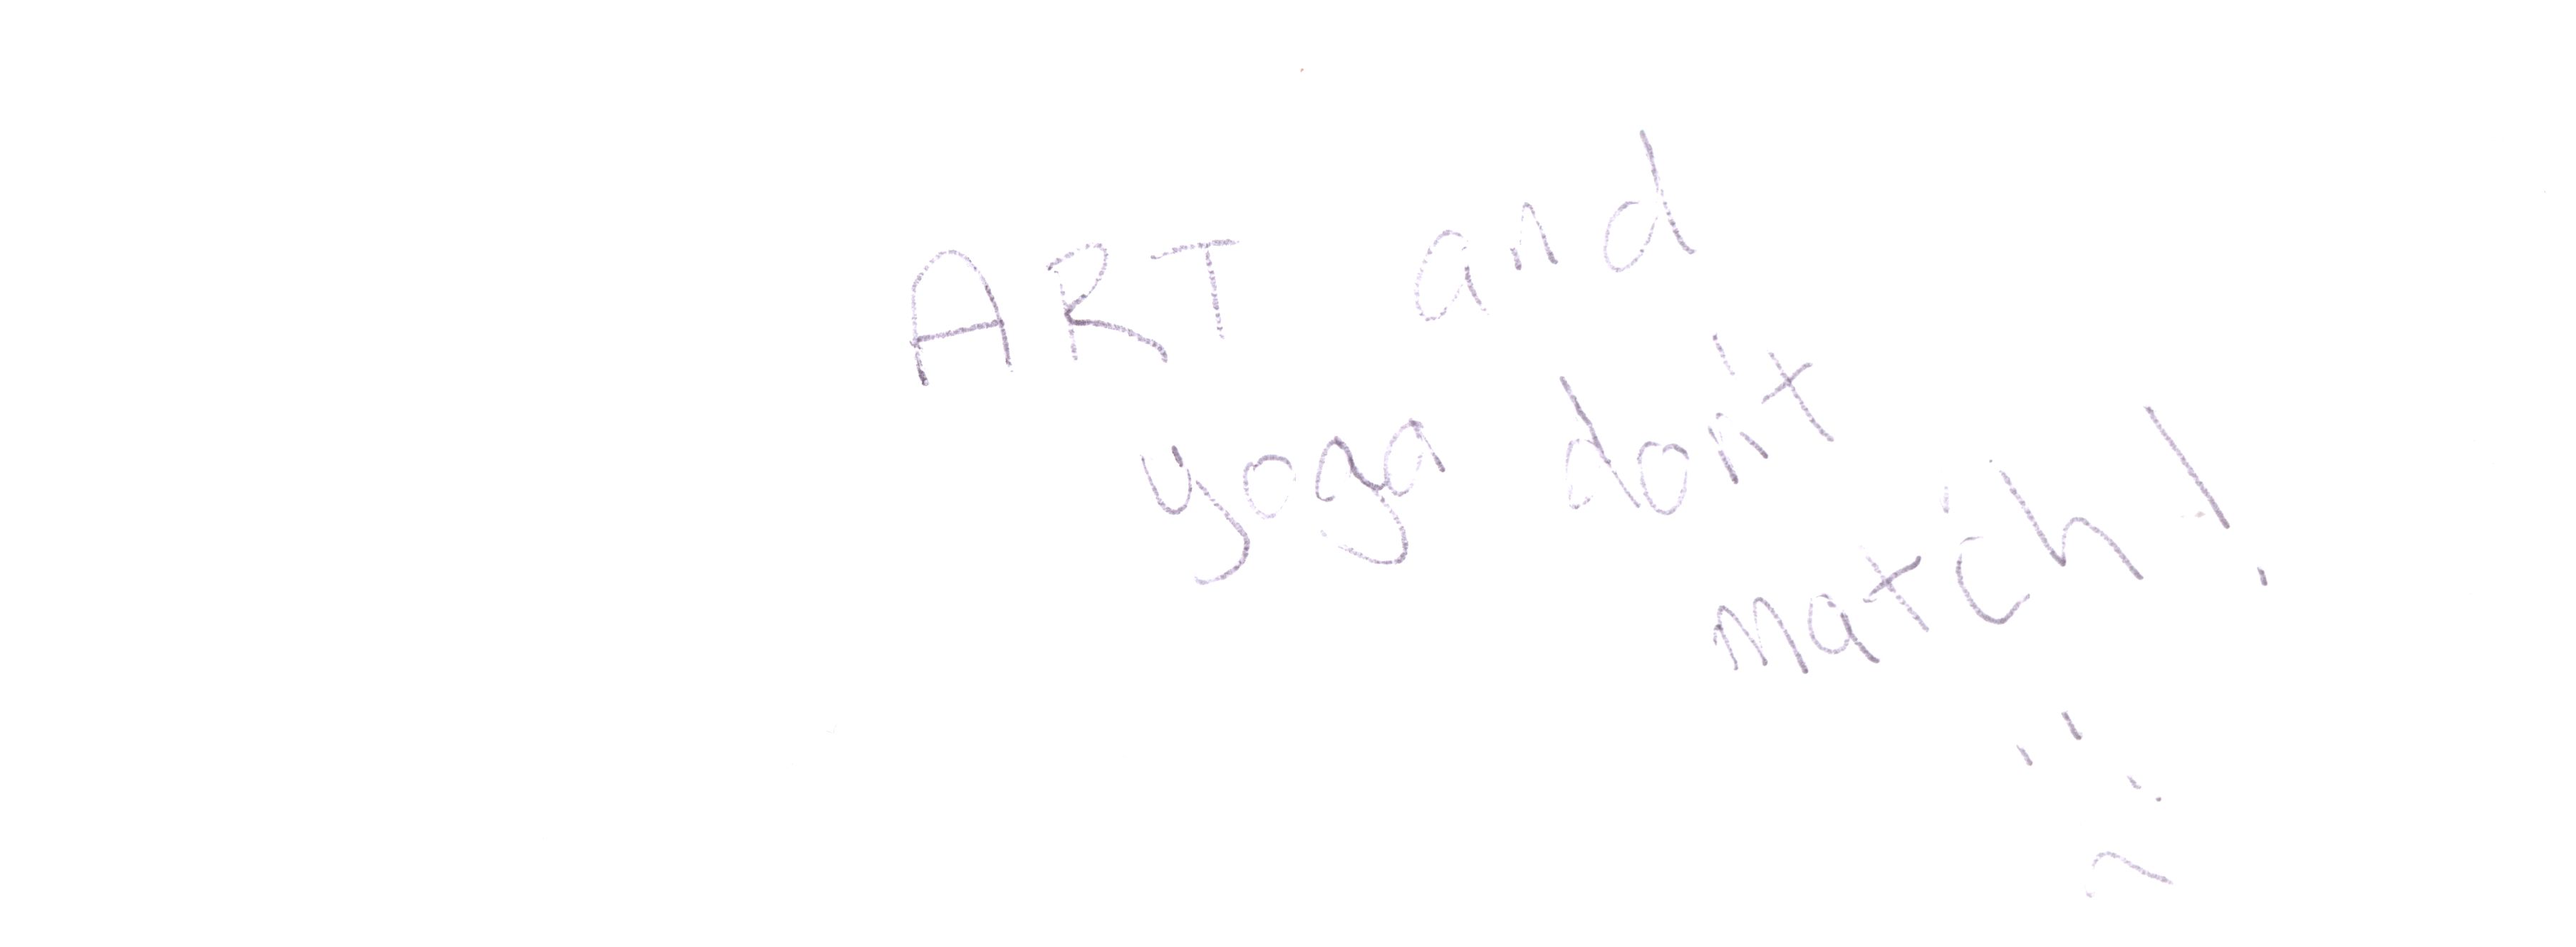 ART and
yoga don't
match!